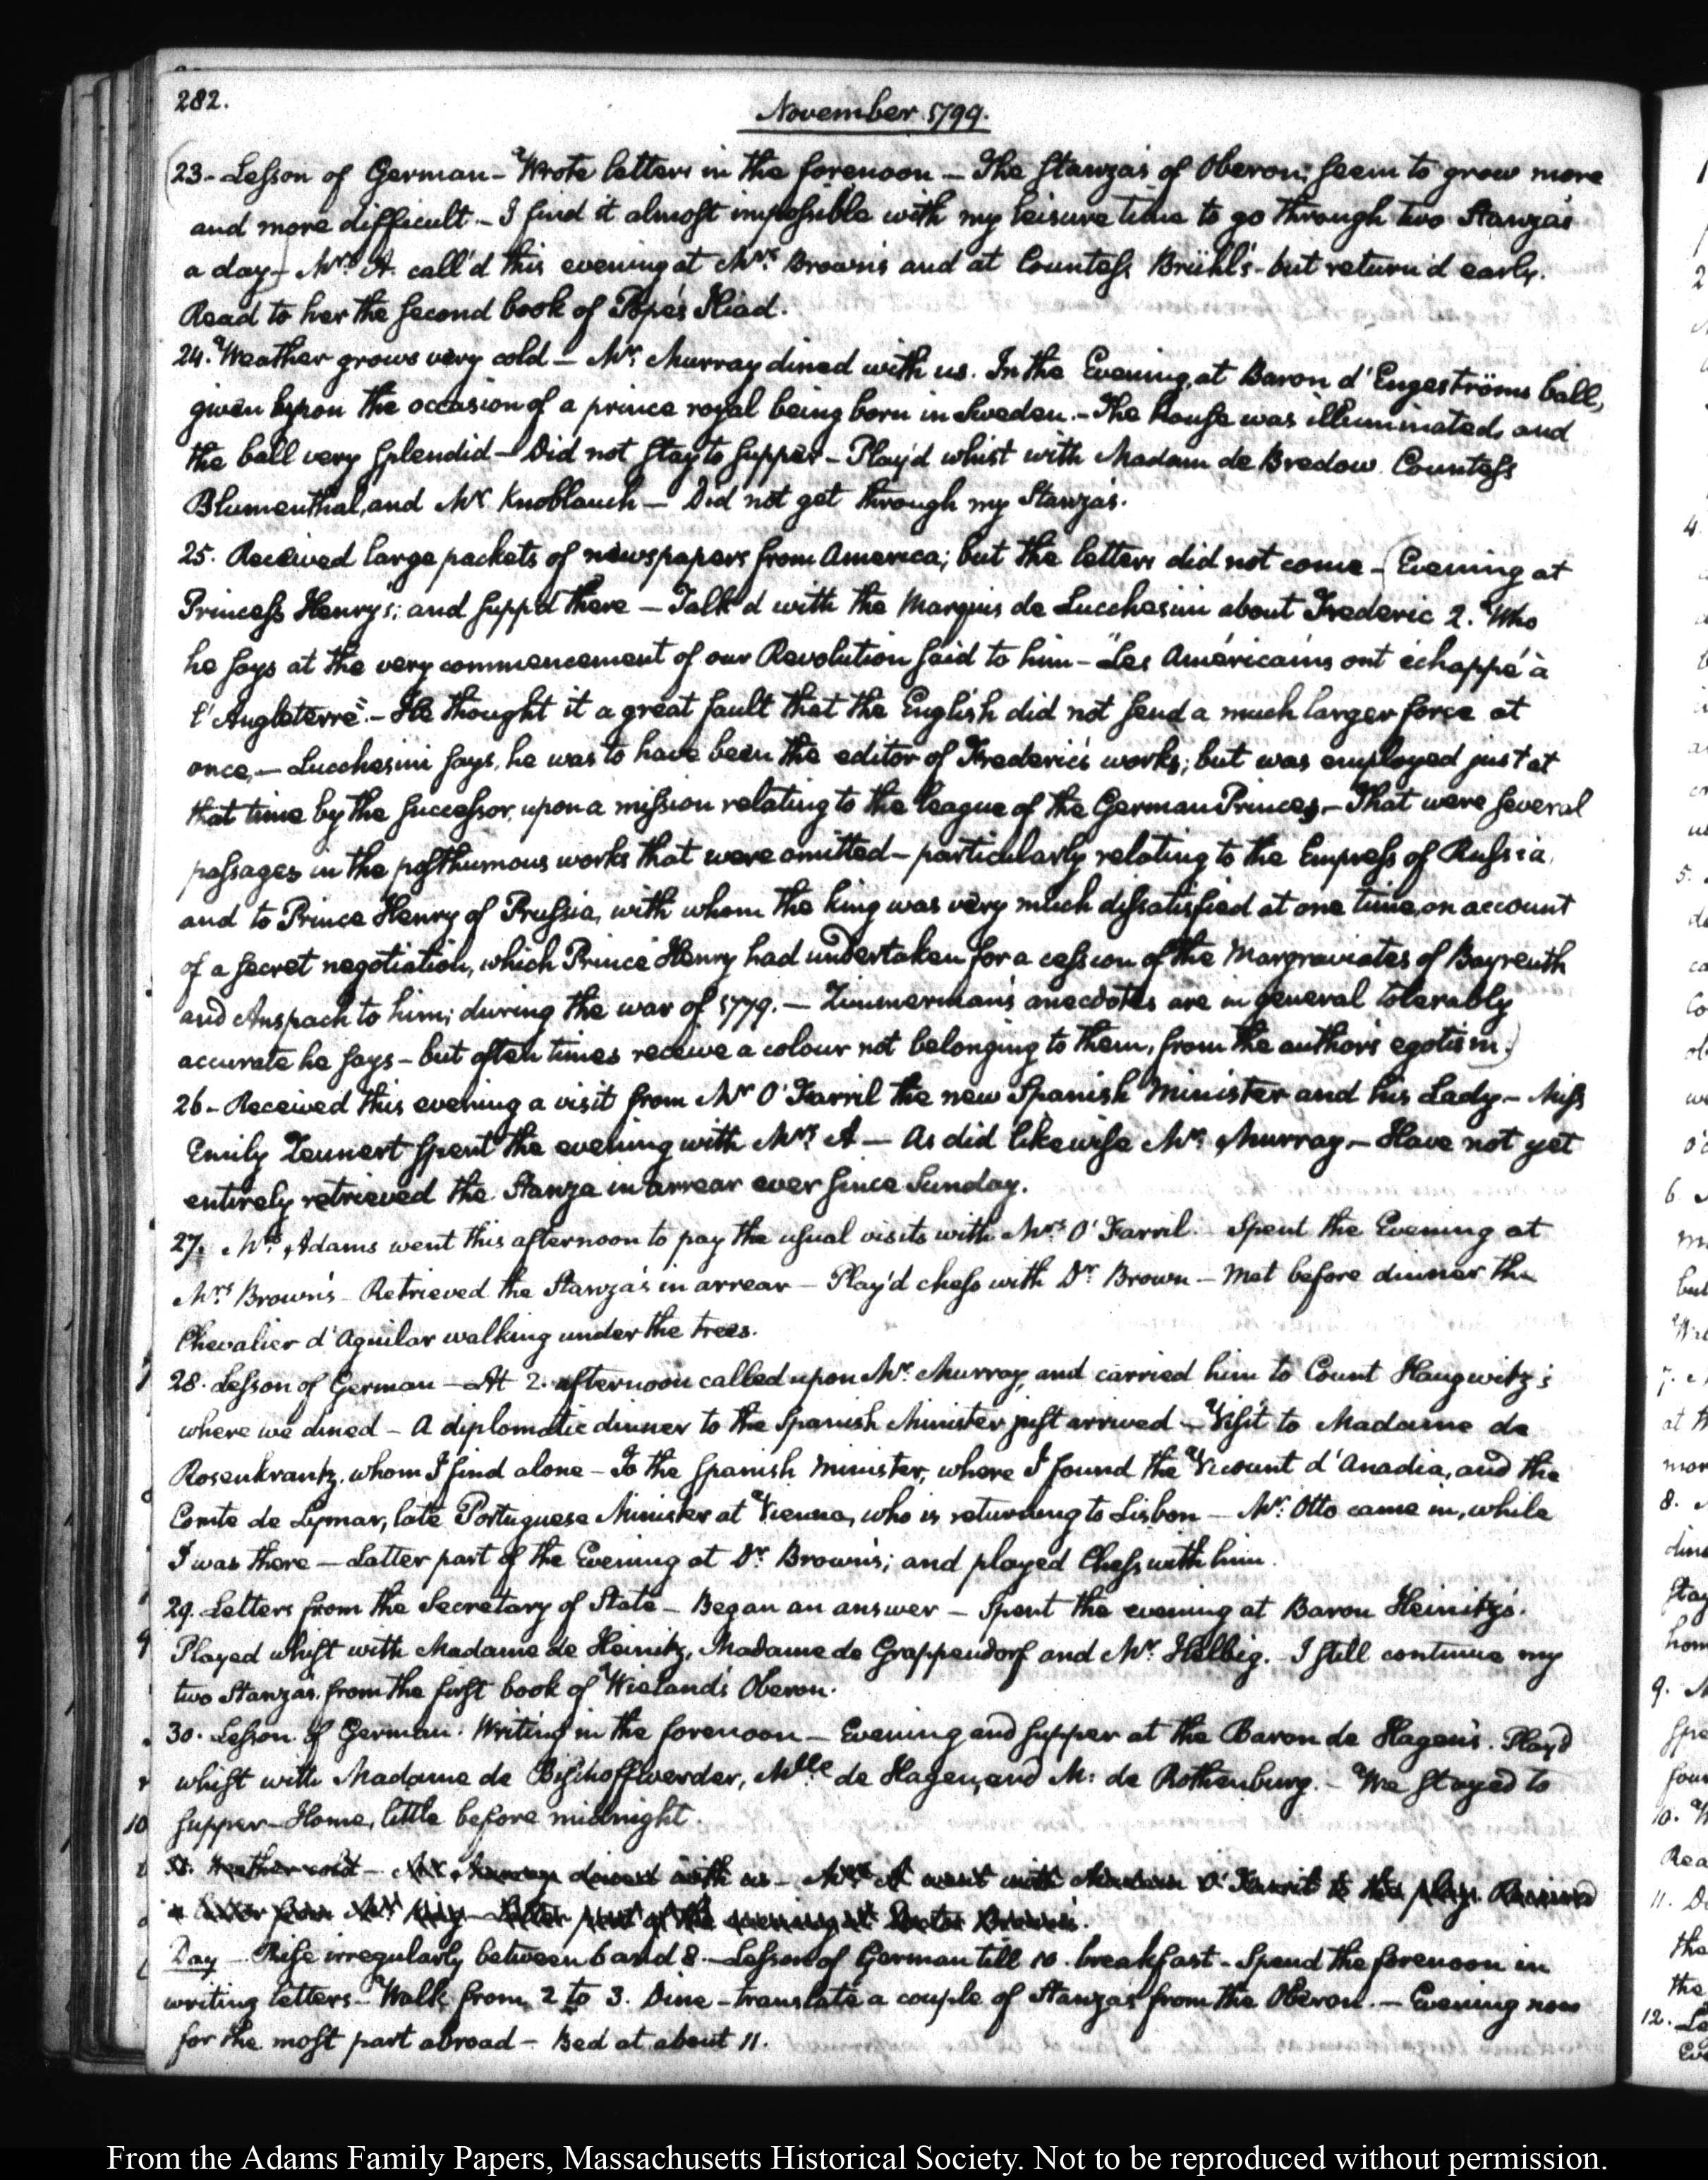 282.
November 1799.
(23 - Lesson of German - Wrote letters in the forenoon - The Stanza's of Oberon, seem to grow more
and more difficult - I find it almost impossible with my leisure time to go through two Stanza's
a day) - Mrs. A. call'd this evening at Mrs. Brown's and at Countess Brühl's - but return'd early.
Read to her the second book of Pope's Iliad.
24. Weather grows very cold - Mr. Murray dined with us. In the Evening, at Baron d'Engeströms ball,
given upon the occasion of a prince royal being born in Sweden. - The house was illuminated, and
the ball very splendid - Did not stay to supper - Play'd whist with Madam de Bredow. Countess
Blumenthal, and Mr Knoblauch - Did not get through my Stanza's.
25. Received large packets of newspapers from America; but the letters did not come - (Evening at
Princess Henry's; and supp'd there - Talk'd with the Marquis de Lucchesini about Frederic 2. Who
he says at the very commencement of our Revolution said to him - "Les Américains ont échappé à
l'Angleterre". - He thought it a great fault that the English did not send a much larger force at
once, - Lucchesini says, he was to have been the editor of Frederic's works; but was employed just at
that time by the successor, upon a mission relating to the league of the German Princes, - That were several
passages in the posthumous works that were omitted - particularly relating to the Empress of Russia,
and to Prince Henry of Prussia, with whom the king was very much dissatisfied at one time, on account
of a secret negotiation, which Prince Henry had undertaken for a cession of the Margraviates of Bayreuth
and Anspach to him; during the war of 1779. - Zimmerman's anecdotes are in general tolerably
accurate he says - but often times receive a colour not belonging to them, from the author's egotism.)
26 - Received this evening a visit from Mr O'Farril the new Spanish Minister and his Lady - Miss
Emily Zeunert spent the evening with Mrs. A - As did likewise Mr. Murray - Have not yet
entirely retrieved the Stanza in arrear ever since Sunday.
27. Mrs. Adams went this afternoon to pay the usual visits with Mrs. O'Farril. Spent the Evening at
Mrs. Brown's - Retrieved the Stanza's in arrear - Play'd chess with Dr. Brown - Met before dinner the
Chevalier d'Aguilar walking under the trees.
28. Lesson of German - At 2. afternoon called upon Mr. Murray, and carried him to Count Haugwitz's
where we dined - A diplomatic dinner to the Spanish Minister just arrived - Visit to Madame de
Rosenkrantz, whom I find alone - To the Spanish Minister, where I found the Vicount d'Anadia, and the
Comte de Lymar, late Portuguese Minister at Vienna, who is returning to Lisbon - Mr. Otto came in, while
I was there - Latter part of the Evening at Dr. Brown's; and played Chess with him.
29. Letters from the Secretary of State - Began an answer - Spent the evening at Baron Heinitz's.
Played whist with Madame de Heinitz, Madame de Grappendorf and Mr. Helbig. - I still continue my
two Stanza's from the first book of Wieland's Oberon.
30. Lesson of German. Writing in the forenoon - Evening and supper at the Baron de Hagen's. Play'd
whist with Madame de Bischoffwerder, Mlle de Hagen, and M: de Rothenburg. - We stayed to
supper - Home, little before midnight.
Weather cold - dined with us - Mrs. A went with O'Farril to the play. Received
Latter part of the evening at Doctor Brown's.
Day - Rise irregularly between 6 and 8 - Lesson of German till 10. breakfast - Spend the forenoon in
writing letters - Walk from 2 to 3. Dine - translate a couple of Stanza's from the Oberon. - Evening now
for the most part abroad - Bed at about 11.
From the Adams Family Papers, Massachusetts Historical Society. Not to be reproduced without permission.